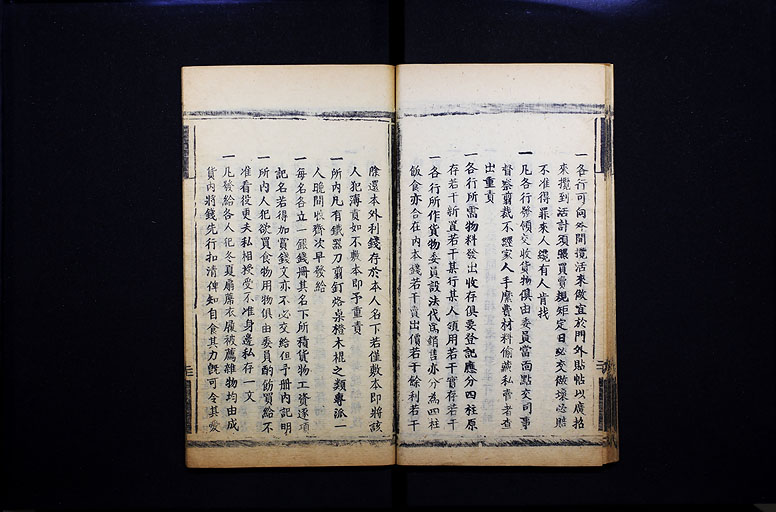 一各行可向外間攬活來做宜於門外貼帖以廣招
來攬到活計須照買賣規矩定日必交做壞必賠
不准得罪來人纔有人肯找
一凡各行發領交收貨物俱由委員當面點交司事
督察剪裁不經家人手糜費材料偷藏私賣者查
出重責
一各行所需物料發出收存俱要登記應分四柱原
存若干新置若干某行某人領用若干實存若干
一各行所作貨物委員設法代為銷售亦分為四柱
飯食亦合在內本錢若干賣出價若干餘利若干
除還本外利錢存於本人名下若僅敷本即將該
人犯薄責如不敷本即予重責
一所內凡有鐵器刀剪釘烙桌櫈木棍之類專派一
人晚間收齊次早發給
一每名各立一銀錢冊其名下所積貨物工資逐項
記名若得加賞錢文亦不必交給但予冊內記明
一所內人犯欲買食物用物俱由委員酌飭買給不
准看役更夫私相授受不准身邊私存一文
一凡發給各人犯冬夏扇蓆衣履被薦雜物均由成
貨內將錢先行扣清俾知自食其力既可令其愛